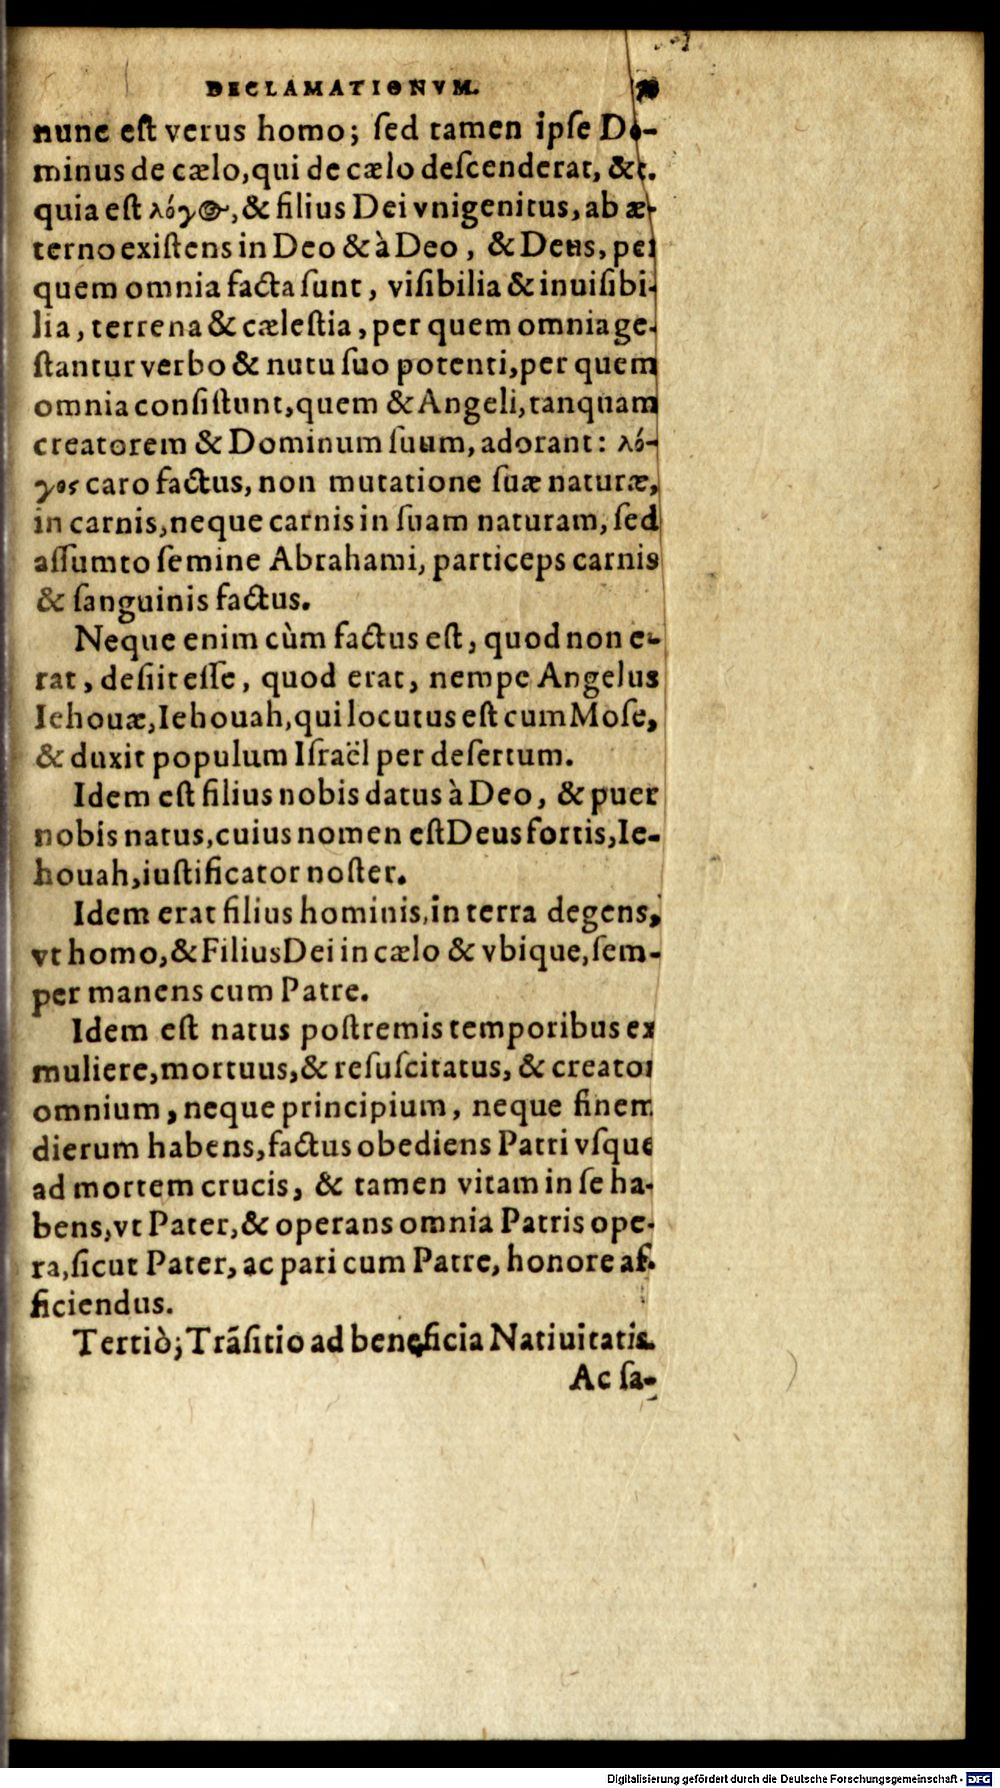 DECLAMATIONVM.
nunc eſt verus homo; ſed tamen ipſe Do-
minus de cælo, qui de cælo deſcenderat, &c.
quia eſt λόγος, & filius Dei vnigenitus, ab æ-
terno exiſtens in Deo & à Deo, & Deus, per
quem omnia facta ſunt, viſibilia & inuiſibi-
lia, terrena & cæleſtia, per quem omnia ge-
ſtantur verbo & nutu ſuo potenti, per quem
omnia conſiſtunt, quem & Angeli, tanquam
creatorem & Dominum ſuum, adorant: λό-
γος caro factus, non mutatione ſuæ naturæ,
in carnis, neque carnis in ſuam naturam, ſed
aſſumto ſemine Abrahami, particeps carnis
& ſanguinis factus.
Neque enim cùm factus eſt, quod non e-
rat, deſiit eſſe, quod erat, nempe Angelus
Iehouæ, Iehouah, qui locutus eſt cum Moſe,
& duxit populum Iſraël per deſertum.
Idem eſt filius nobis datus à Deo, & puer
nobis natus, cuius nomen eſt Deus fortis, Ie-
houah, iuſtificator noſter.
Idem erat filius hominis, in terra degens,
vt homo, & Filius Dei in cælo & vbique, ſem-
per manens cum Patre.
Idem eſt natus poſtremis temporibus ex
muliere, mortuus, & reſuſcitatus, & creator
omnium, neque principium, neque finem
dierum habens, factus obediens Patri vſque
ad mortem crucis, & tamen vitam in ſe ha-
bens, vt Pater, & operans omnia Patris ope-
ra, ſicut Pater, ac pari cum Patre, honore af-
ficiendus.
Tertiò; Trãſitio ad beneficia Natiuitatis.
Ac ſa-
Digitalisierung gefördert durch die Deutsche Forschungsgemeinschaft - DFG